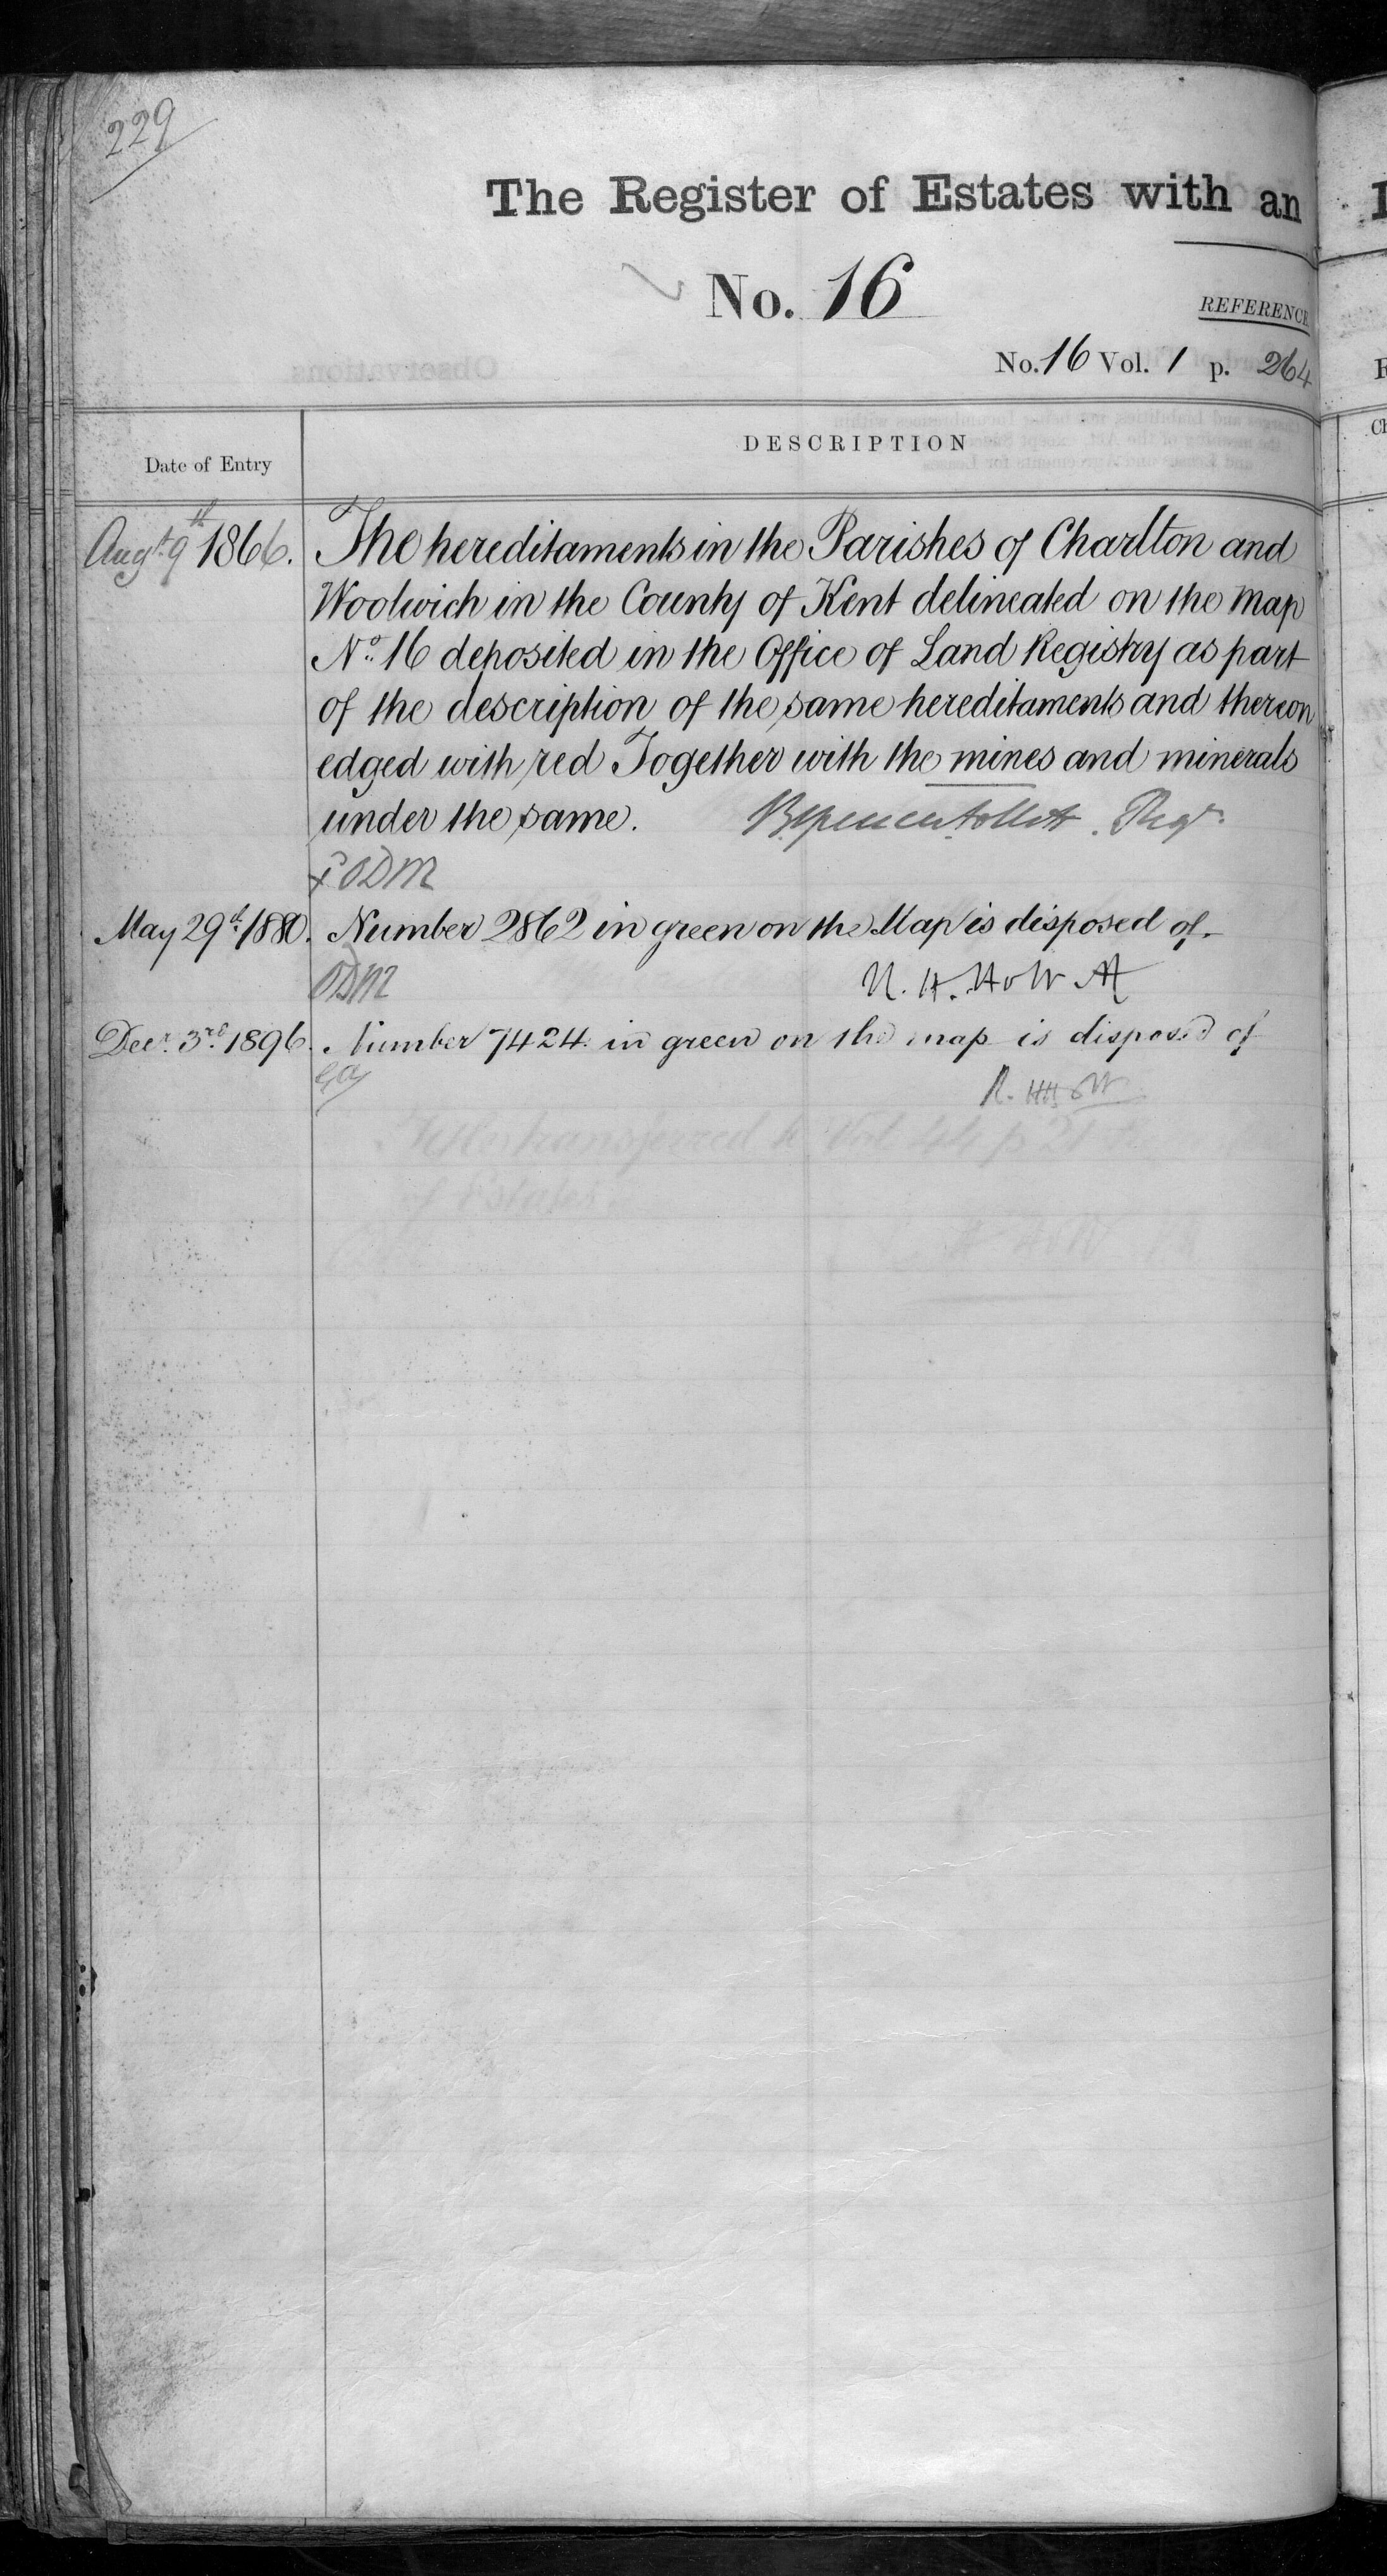 229
The Register of Estates with an
No. 16
REFERENCE
No. 16 Vol. 1 p. 264
Date of Entry
DESCRIPTION
Augt. 9th 1866. The hereditaments in the Parishes of Charlton and
Woolwich in the County of Kent delineated on the Map
No. 16 deposited in the Office of Land Registry as part
of the description of the same hereditaments and thereon
edged with red Together with the mines and minerals
under the same. Regr.
ODM
May 29th 1880. Number 2862 in green on the Map is disposed of.
ODM
Decr. 3rd 1896. Number 7424 in green on the map is disposed of
transferred to Vol 44 p 21
of Estates